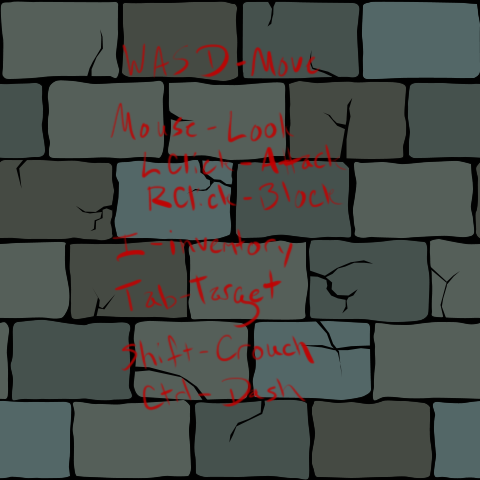 WASD-Move
Mouse-Look
LClick-Attack
RClick-Block
I-inventory
Tab-Target
Shift-Crouch
Ctrl-Dash